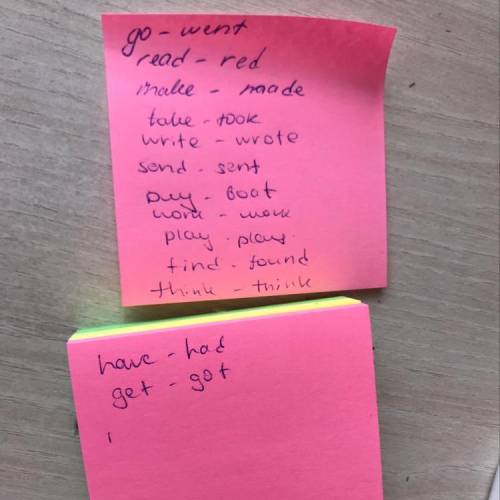 go - went
read - red
make - made
take - took
write - wrote
send - sent
buy - boat
work - work
play - play
find - found
think - think
have - had
get - got